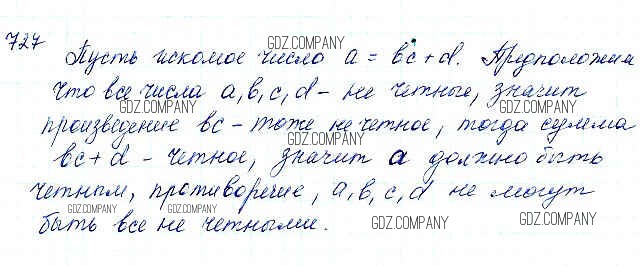 727 GDZ.COMPANY
Пусть искомое число a = bc + d. Предположим
GDZ.COMPANY GDZ.COMPANY
что все числа a, b, c, d - не четные, значит
GDZ.COMPANY GDZ.COMPANY
произведение bc - тоже не четное, тогда сумма
GDZ.COMPANY
bc + d - четное, значит a должно быть
GDZ.COMPANY GDZ.COMPANY
четным, противоречие, a, b, c, d не могут
GDZ.COMPANY GDZ.COMPANY GDZ.COMPANY
быть все не четными.